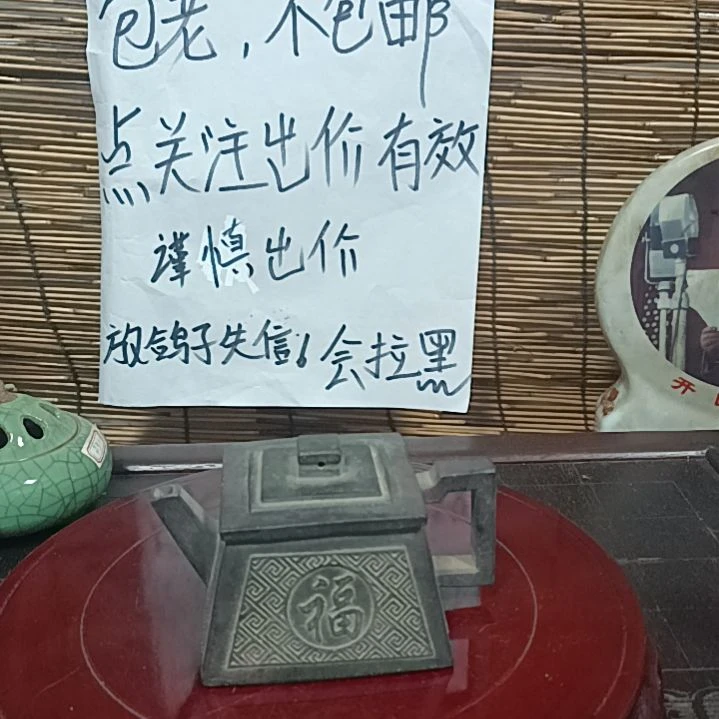 包老，不包邮
点关注出价有效
谨慎出价
放鸽子失信！会拉黑
福
开